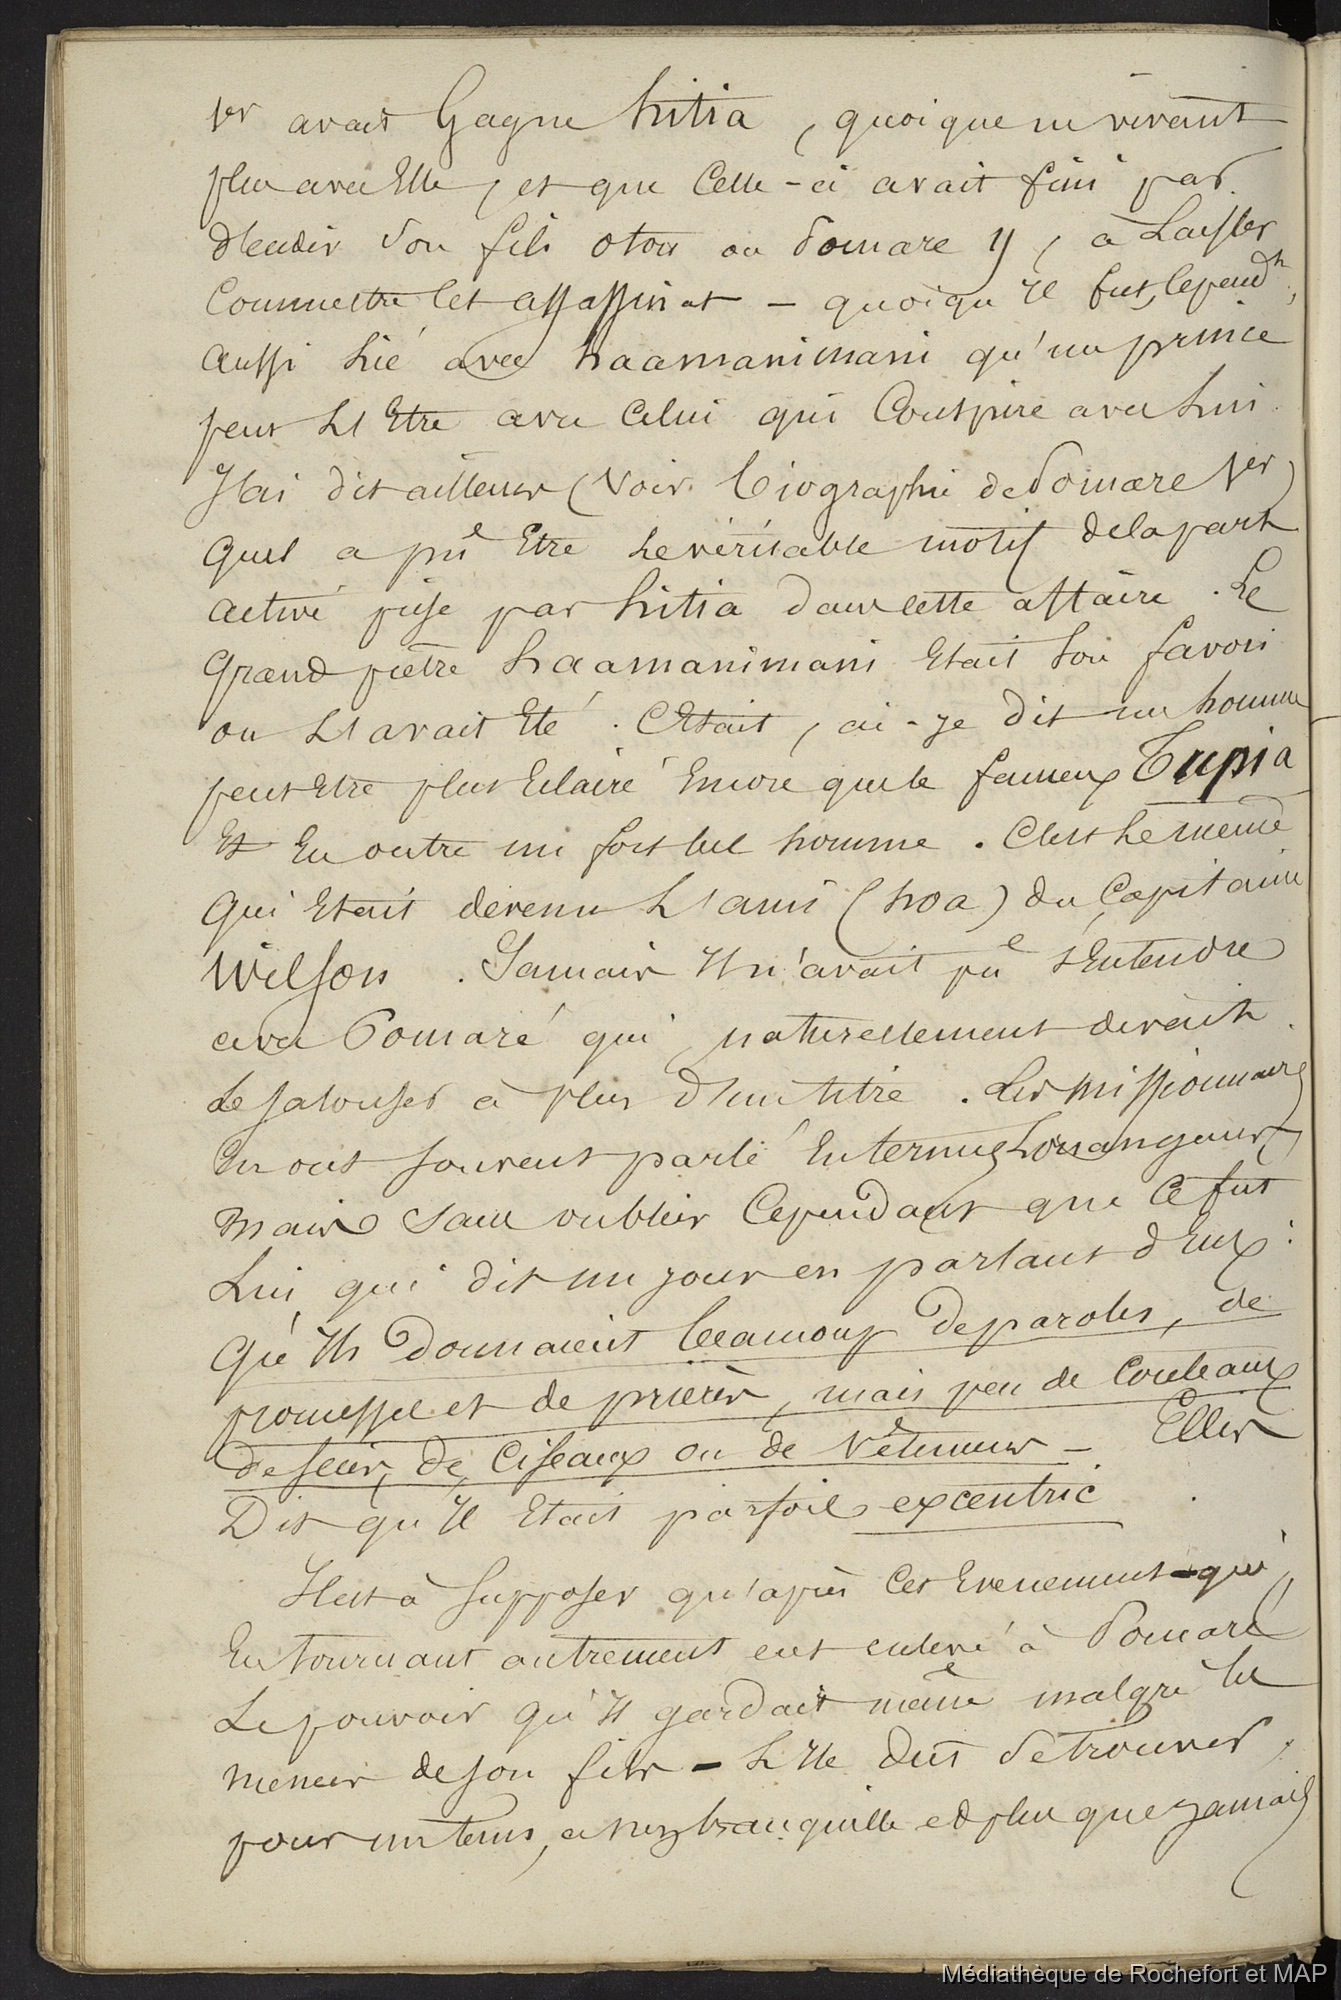 1er avait Gagné hitia, quoique ne vivant
plus avec Elle, et que Celle-ci avait fini par
décider Son fils otou ou Pomare II, à Laisser
Commettre Cet assassinat - quoiqu'Il fut, Cepend.t,
aussi Lié avec haamanimani qu'un prince
peut L'Etre avec Celui qui Conspire avec Lui.
J'ai dit ailleurs (Voir Biographie de Pomare 1er)
quel a pu Etre Le véritable motif de la part
active prise par hitia dans cette affaire. Le
Grand prêtre haamanimani Etait Son favori
ou L'avait Eté. C'Etait, ai-je dit un homme
peut Etre plus Eclairé Encore que le fameux Tupia
Et En outre un fort bel homme. C'est Le même
qui Etait devenu L'ami (hoa) du Capitaine
Wilson. Jamais Il n'avait pu s'Entendre
avec Pomaré qui, naturellement devait
Le jalouser à plus d'un titre. Les missionnaires
En ont souvent parlé En termes Louangeurs,
mais sans oublier Cependant que Ce fut
Lui qui dit un jour en parlant d'Eux:
Qu'Ils Donnaient beaucoup de paroles, de
promesses et de prières, mais peu de Couteaux
de scies, de Ciseaux ou de Vêtemens - Ellis
Dit qu'Il Etait parfois excentric.
Il est à Supposer qu'après Ces Evenements - qui,
En tournant autrement eut enlevé à Pomaré
Le pouvoir qu'Il gardait même malgré les
meneurs de son fils - L'Ile dut Se trouver,
pour un tems, assez tranquille et plus que jamais
Médiathèque de Rochefort et MAP